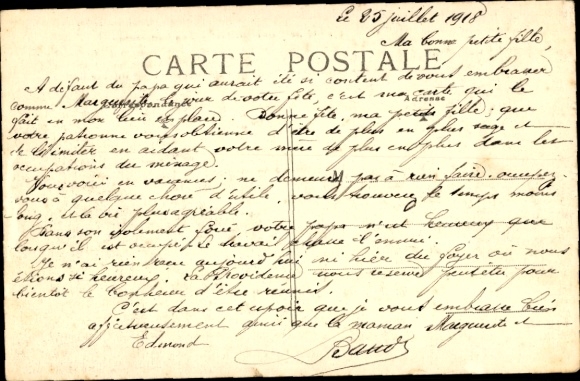 Le 25 juillet 1918
Ma bonne petite fille,
CARTE POSTALE
A défaut du papa qui aurait été si content de vous embrasser
comme Marguerite le jour de votre fête, c'est ma carte qui le
Correspondance
Adresse
fait en mon lieu et place. Bonne fête, ma petite fille; que
votre patronne vous obtienne d'être de plus en plus sage et
de l'imiter en aidant votre mère de plus en plus dans les
occupations du ménage.
Vous voici en vacances; ne demeurez pas à rien faire, occupez-
vous à quelque chose d'utile, vous trouverez le temps moins
long, et la vie plus agréable.
Dans son isolement forcé, votre papa n'est heureux que
lorsqu'il est occupé; le travail chasse l'ennui.
Je n'ai rien reçu aujourd'hui ni hier du foyer où nous
étions si heureux. La Providence nous réserve peut-être pour
bientôt le bonheur d'être réunis.
C'est dans cet espoir que je vous embrasse bien
affectueusement ainsi que la maman Marguerite et
Edmond